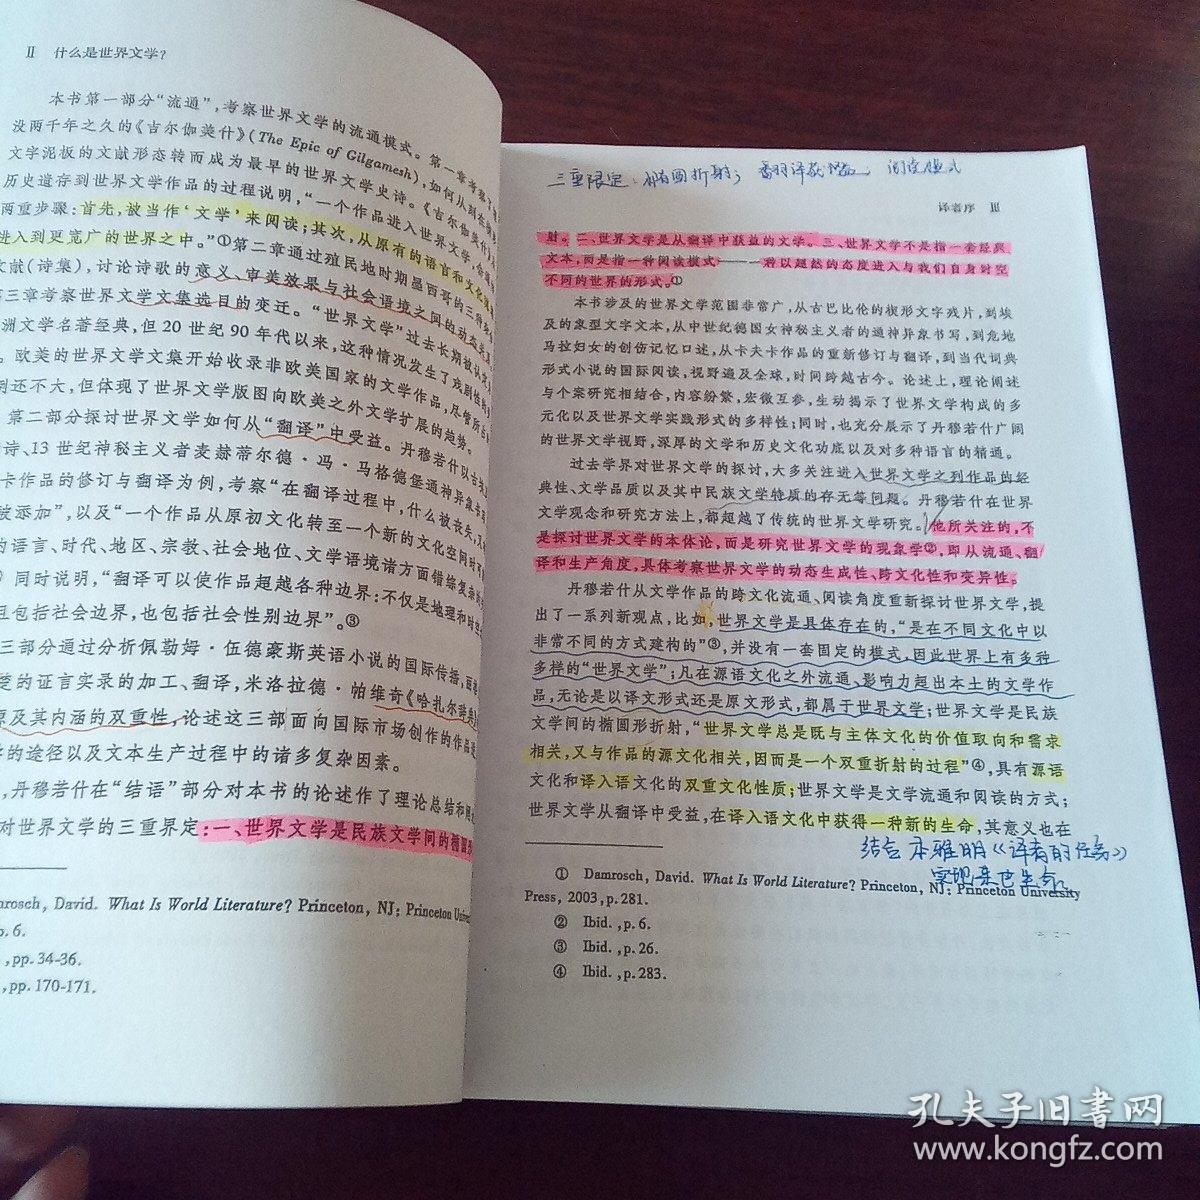 Ⅱ 什么是世界文学?
本书第一部分“流通”,考察世界文学的流通模式。第一章考察了
没两千年之久的《吉尔伽美什》(The Epic of Gilgamesh),如何从
文字泥板的文献形态转而成为最早的世界文学史诗。《吉尔伽美什》
历史遗存到世界文学作品的过程说明,“一个作品进入世界文学,
两重步骤:首先,被当作‘文学’来阅读;其次,从原有的语言和文化
进入到更宽广的世界之中。”①第二章通过殖民地时期墨西哥的三种
文献(诗集),讨论诗歌的意义、审美效果与社会语境之间的动态
三章考察世界文学文集选目的变迁。“世界文学”过去长期被
洲文学名著经典,但20世纪90年代以来,这种情况发生了戏剧性的
。欧美的世界文学文集开始收录非欧美国家的文学作品,尽管所
例还不大,但体现了世界文学版图向欧美之外文学扩展的趋势。
第二部分探讨世界文学如何从“翻译”中受益。丹穆若什以古
诗、13世纪神秘主义者麦赫蒂尔德·冯·马格德堡通神异象书
卡作品的修订与翻译为例,考察“在翻译过程中,什么被丧失,又
被添加”,以及“一个作品从原初文化转至一个新的文化空间时
的语言、时代、地区、宗教、社会地位、文学语境诸方面错综复杂
同时说明,“翻译可以使作品超越各种边界:不仅是地理和时
且包括社会边界,也包括社会性别边界”。③
三部分通过分析佩勒姆·伍德豪斯英语小说的国际传播,
楚的证言实录的加工、翻译,米洛拉德·帕维奇《哈扎尔辞典》
原及其内涵的双重性,论述这三部面向国际市场创作的作品
的途径以及文本生产过程中的诸多复杂因素。
,丹穆若什在“结语”部分对本书的论述作了理论总结和
对世界文学的三重界定:一、世界文学是民族文学间的椭圆
mrosch, David. What Is World Literature? Princeton, NJ: Princeton Univer
p.6.
,pp.34-36.
,pp.170-171.
三重限定:椭圆折射; 翻译获益; 阅读模式
译者序 Ⅲ
射。二、世界文学是从翻译中获益的文学。三、世界文学不是指一套经典
文本,而是指一种阅读模式——一种以超然的态度进入与我们自身时空
不同的世界的形式。①
本书涉及的世界文学范围非常广,从古巴比伦的楔形文字残片,到埃
及的象型文字文本,从中世纪德国女神秘主义者的通神异象书写,到危地
马拉妇女的创伤记忆口述,从卡夫卡作品的重新修订与翻译,到当代词典
形式小说的国际阅读,视野遍及全球,时间跨越古今。论述上,理论阐述
与个案研究相结合,内容纷繁,宏微互参,生动揭示了世界文学构成的多
元化以及世界文学实践形式的多样性;同时,也充分展示了丹穆若什广阔
的世界文学视野,深厚的文学和历史文化功底以及对多种语言的精通。
过去学界对世界文学的探讨,大多关注进入世界文学之列作品的经
典性、文学品质以及其中民族文学特质的存无等问题。丹穆若什在世界
文学观念和研究方法上,都超越了传统的世界文学研究。他所关注的,不
是探讨世界文学的本体论,而是研究世界文学的现象学②,即从流通、翻
译和生产角度,具体考察世界文学的动态生成性、跨文化性和变异性。
丹穆若什从文学作品的跨文化流通、阅读角度重新探讨世界文学,提
出了一系列新观点,比如,世界文学是具体存在的,“是在不同文化中以
非常不同的方式建构的”③,并没有一套固定的模式,因此世界上有多种
多样的“世界文学”;凡在源语文化之外流通、影响力超出本土的文学作
品,无论是以译文形式还是原文形式,都属于世界文学;世界文学是民族
文学间的椭圆形折射,“世界文学总是既与主体文化的价值取向和需求
相关,又与作品的源文化相关,因而是一个双重折射的过程”④,具有源语
文化和译入语文化的双重文化性质;世界文学是文学流通和阅读的方式;
世界文学从翻译中受益,在译入语文化中获得一种新的生命,其意义也在
结合本雅明《译者的任务》
实现来世生命
① Damrosch, David. What Is World Literature? Princeton, NJ: Princeton University
Press, 2003, p.281.
② Ibid. ,p.6.
③ Ibid. ,p.26.
④ Ibid. ,p.283.
孔夫子旧书网
www.kongfz.com